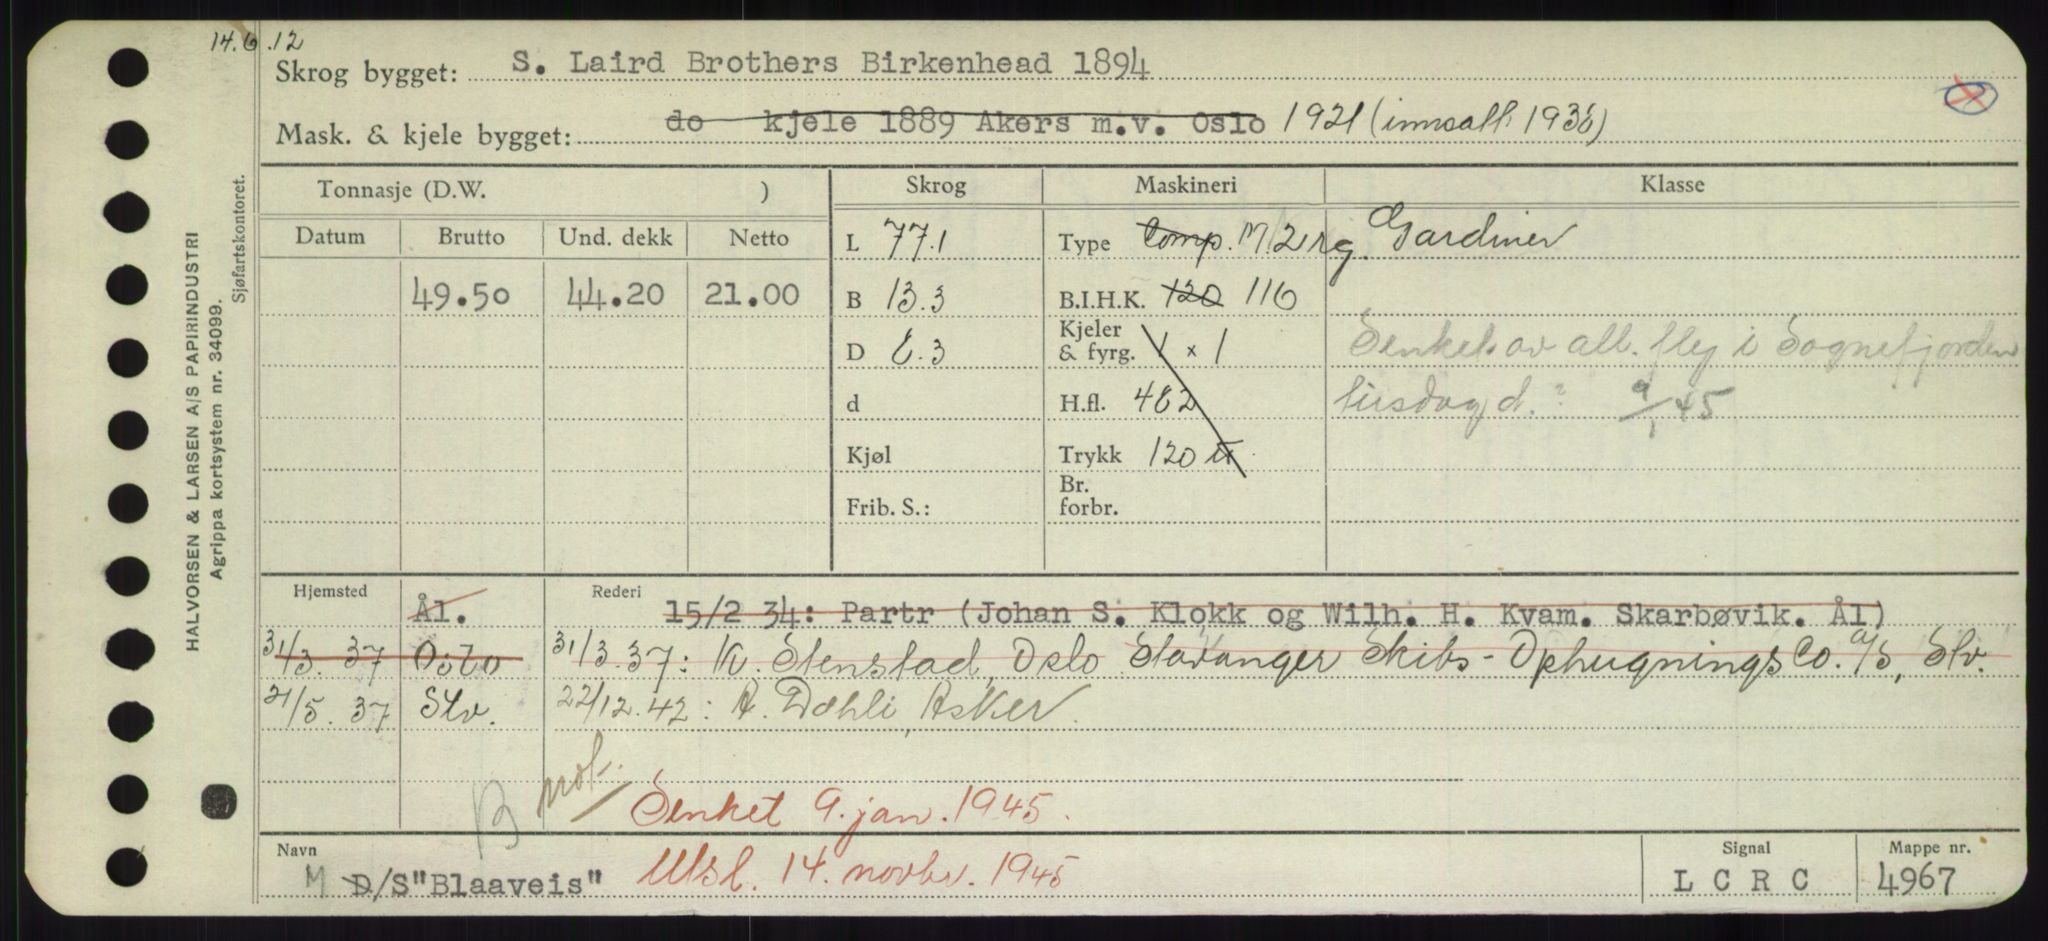 14.6.12
Skrog bygget: S. Laird Brothers Birkenhead 1894
Mask. & kjele bygget: do kjele 1889 Akers m.v. Oslo 1921 (innsatt 1936)
HALVORSEN & LARSEN A/S PAPIRINDUSTRI
Agrippa kortsystem nr. 34099.
Sjøfartskontoret.
Tonnasje (D.W. ) Skrog Maskineri Klasse
Datum Brutto Und. dekk Netto
L 77.1 Type Comp. M. 2 rg. Gardiner
49.50 44.20 21.00 B 13.3 B.I.H.K. 120 116
D 6.3 Kjeler & fyrg. 1 x 1 Senket av all. fly i Sognefjorden
d H.fl. 482 tirsdag d. ? 9/1 45
Kjøl Trykk 120 tt
Frib. S.: Br. forbr.
Hjemsted Ål. Rederi 15/2 34: Partr (Johan S. Klokk og Wilh. H. Kvam. Skarbøvik. Ål)
31/3. 37 Oslo 31/3.37: K. Stenstad, Oslo Stavanger Skibs-Ophugnings Co. A/S, Slv.
21/5. 37 Slv. 22/12.42: A. Dæhli, Asker.
B prot. Senket 9. jan. 1945.
Navn M D/S "Blaaveis" Utsl. 14. novbr. 1945
Signal L C R C
Mappe nr. 4967